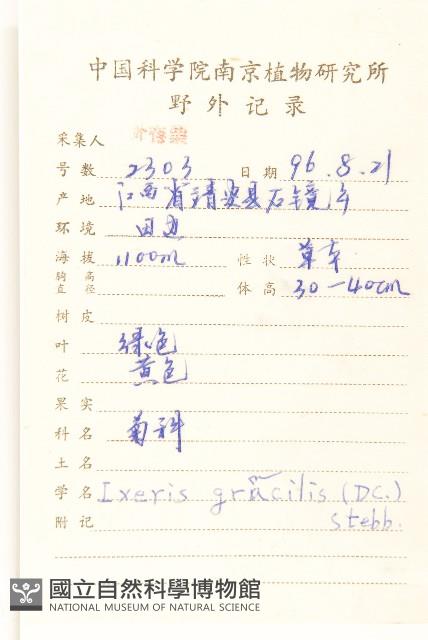 中国科学院南京植物研究所
野外记录
采集人
号数 2303 日期 96.8.21
产地 江西省靖安县石镜乡
环境 田边
海拔 1100m 性状 草本
胸高直径 体高 30-40cm
树皮
叶 绿色
花 黄色
果实
科名 菊科
土名
学名 Ixeris gracilis (DC.)
附记 stebb.
國立自然科學博物館
NATIONAL MUSEUM OF NATURAL SCIENCE